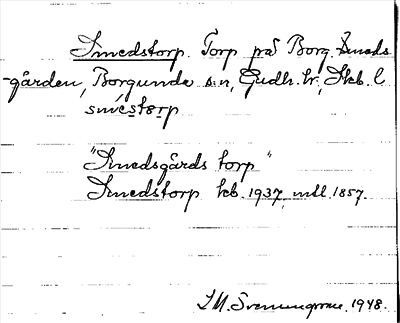 Smedstorp. Torp på Borg. Smeds
-gården, Borgunda s:n, Gudh. hr., Skb. l.
smésto̱rp
"Smedsgårds torp"
Smedstorp kb. 1937, mtl. 1857.
1948.